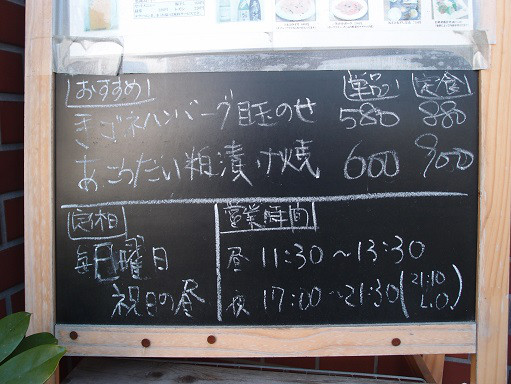 おすすめ 単品 定食
きざネハンバーグ目玉のせ 580 880
あこうだい粕漬け焼 600 900
定休日
毎日曜日
祝日の昼
営業時間
昼 11:30〜13:30
夜 17:00〜21:30(21:10 L.O.)